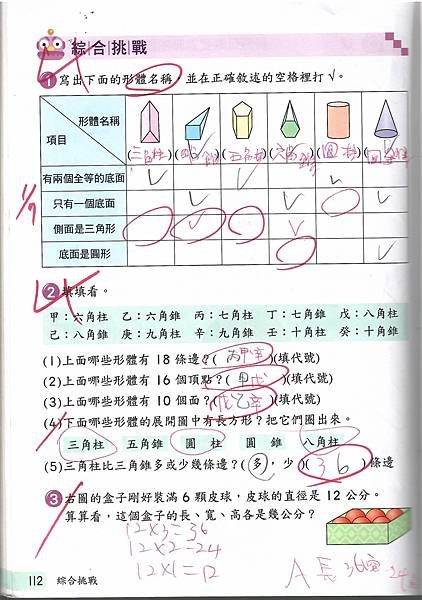 綜合挑戰
1 寫出下面的形體名稱，並在正確敘述的空格裡打√。
形體名稱
項目
(三角柱)( 錐)(五角柱)(六角錐)(圓柱)(圓 )
有兩個全等的底面 ✓ ✓ ✓
只有一個底面 ✓ ✓ ✓
側面是三角形 ✓
底面是圓形 ✓
2 填填看。
甲：六角柱 乙：六角錐 丙：七角柱 丁：七角錐 戊：八角柱
己：八角錐 庚：九角柱 辛：九角錐 壬：十角柱 癸：十角錐
(1)上面哪些形體有 18 條邊？(丙甲辛)(填代號)
(2)上面哪些形體有 16 個頂點？(甲戊)(填代號)
(3)上面哪些形體有 10 個面？(戊乙辛)(填代號)
(4)下面哪些形體的展開圖中有長方形？把它們圈出來。
三角柱 五角錐 圓柱 圓錐 八角柱
(5)三角柱比三角錐多或少幾條邊？(多，少)(36)條邊
3 右圖的盒子剛好裝滿 6 顆皮球，皮球的直徑是 12 公分。
算算看，這個盒子的長、寬、高各是幾公分？
12×3=36
12×2=24
12×1=12
A 長36寬24
112 綜合挑戰